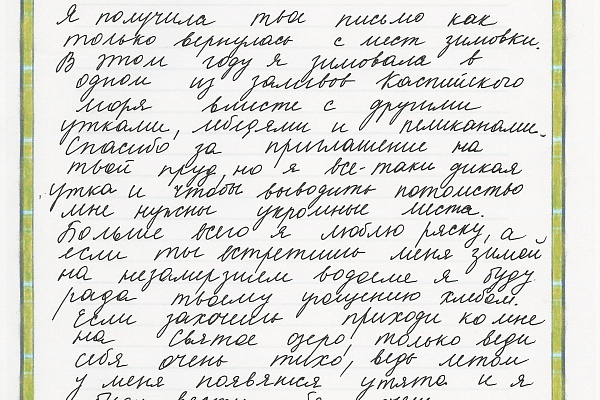 Я получила твоё письмо как
только вернулась с мест зимовки.
В этом году я зимовала в
одном из заливов Каспийского
моря вместе с другими
утками, лебедями и пеликанами.
Спасибо за приглашение на
твой пруд, но я все-таки дикая
утка и чтобы выводить потомство
мне нужны укромные места.
Больше всего я люблю ряску, а
если ты встретишь меня зимой
на незамерзшем водоеме я буду
рада твоему угощению хлебом.
Если захочешь приходи ко мне
на Святое озеро, только веди
себя очень тихо, ведь летом
у меня появятся утята и я